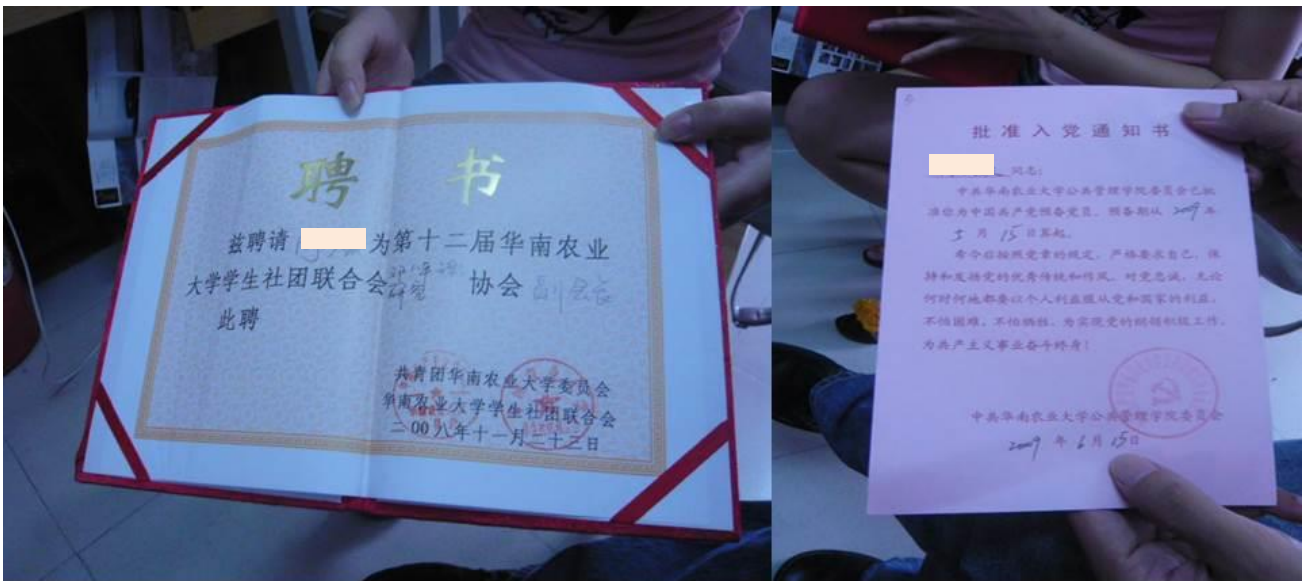 聘 书
兹聘请 为第十二届华南农业
大学学生社团联合会 协会 副会长
此聘
共青团华南农业大学委员会
华南农业大学学生社团联合会
二00八年十一月二十三日
批准入党通知书
同志:
中共华南农业大学公共管理学院委员会已批
准你为中国共产党预备党员,预备期从 2009 年
5 月 15 日算起。
希今后按照党章的规定,严格要求自己,保
持和发扬党的优秀传统和作风,对党忠诚,无论
何时何地都要以个人利益服从党和国家的利益,
不怕困难,不怕牺牲,为实现党的纲领积极工作,
为共产主义事业奋斗终身!
中共华南农业大学公共管理学院委员会
2009 年 6 月 15 日